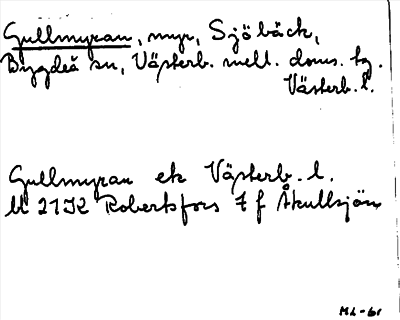 Gullmyran, myr, Sjöbäck,
Bygdeå sn, Västerb. mell. doms. tg.
Västerb. l.
Gullmyran ek Västerb. l.
bl 21 I2 Robertsfors 7 f Åkullsjön
ML-61